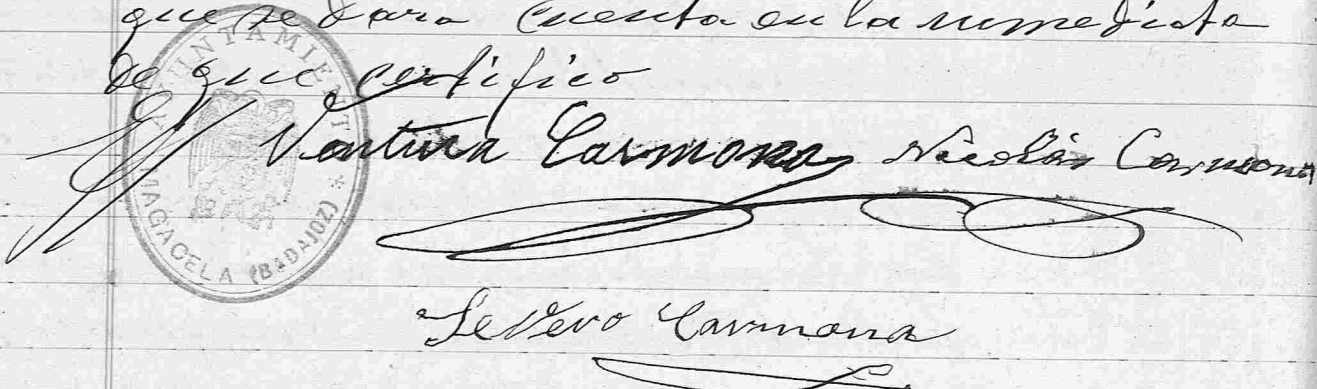 que se dara cuenta en la inmediata
de que certifico
AYUNTAMIENTO * MAGACELA (BADAJOZ)
Ventura Carmona Nicolás Carmona
Severo Carmona